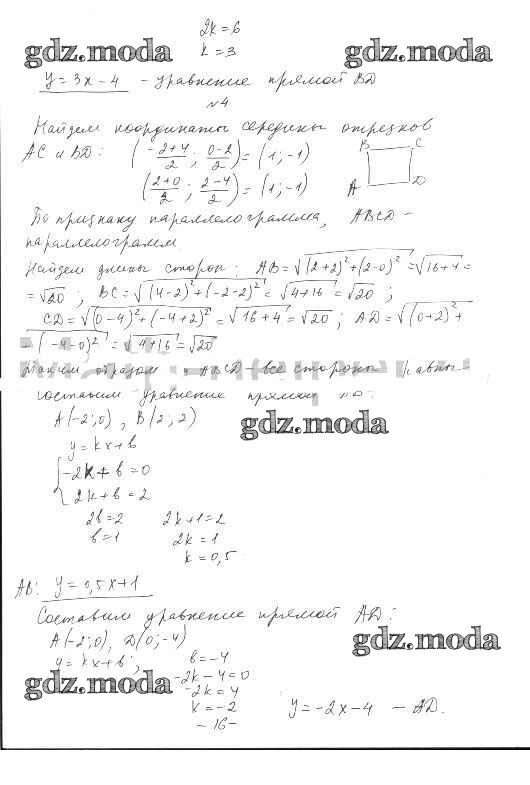 2k=6
gdz.moda k=3 gdz.moda
y=3x-4 - уравнение прямой BD
№4
Найдем координаты середины отрезков
AC и BD: (-2+4/2; 0-2/2)=(1;-1) B C
(2+0/2; 2-4/2)=(1;-1) A D
По признаку параллелограмма, ABCD -
параллелограмм
Найдем длины сторон: AB=√(2+2)²+(2-0)²=√16+4=
=√20; BC=√(4-2)²+(-2-2)²=√4+16=√20;
CD=√(0-4)²+(-4+2)²=√16+4=√20; AD=√(0+2)²+
(-4-0)²=√4+16=√20
Таким образом ABCD - все стороны равны-
составим уравнение прямой
A(-2;0), B(2;2) gdz.moda
y=kx+b
{-2k+b=0
2k+b=2
2b=2 2k+1=2
b=1 2k=1
k=0,5
AB: y=0,5x+1
Составим уравнение прямой AD:
gdz.moda gdz.moda
A(-2;0), D(0;-4)
y=kx+b; b=-4
gdz.moda -2k-4=0
-2k=4
k=-2 y=-2x-4 - AD.
-16-